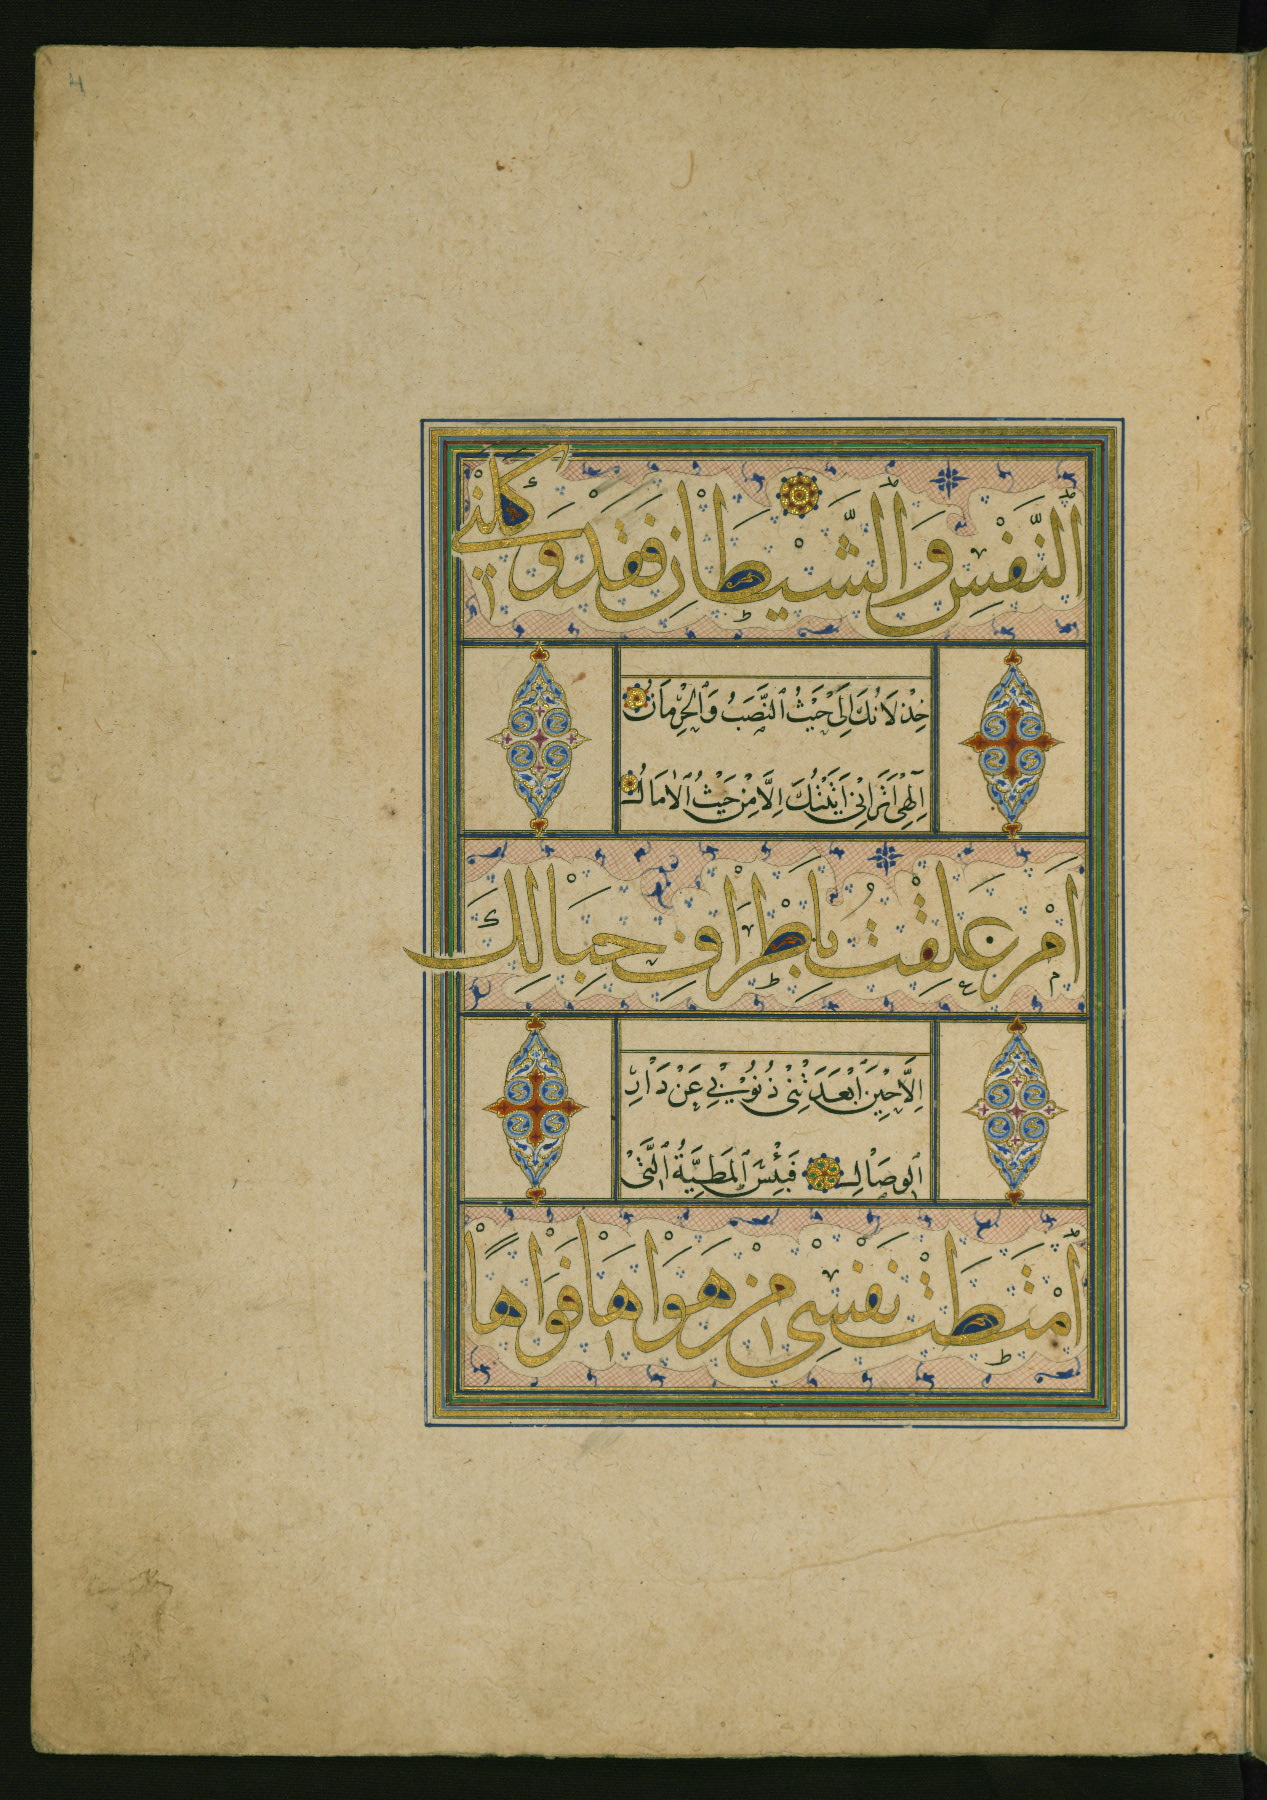 4
النَّفْسِ وَالشَّيْطَانِ فَقَدْ وَكَلَنِي
خِذْلَانُكَ إِلَى حَيْثُ النَّصَبُ وَالْحِرْمَانُ
اِلٰهِي اَتَرَانِيْ اَتَيْتُكَ اِلَّا مِنْ حَيْثُ الْاٰمَالُ
اَمْ عَلِقْتُ بِاَطْرَافِ حِبَالِكَ
اِلَّا حِيْنَ اَبْعَدَتْنِيْ ذُنُوْبِيْ عَنْ دَارِ
الْوِصَالِ فَبِئْسَ الْمَطِيَّةُ الَّتِيْ
اَمْتَطَتْ نَفْسِيْ مِنْ هَوَاهَا فَوَاهًا